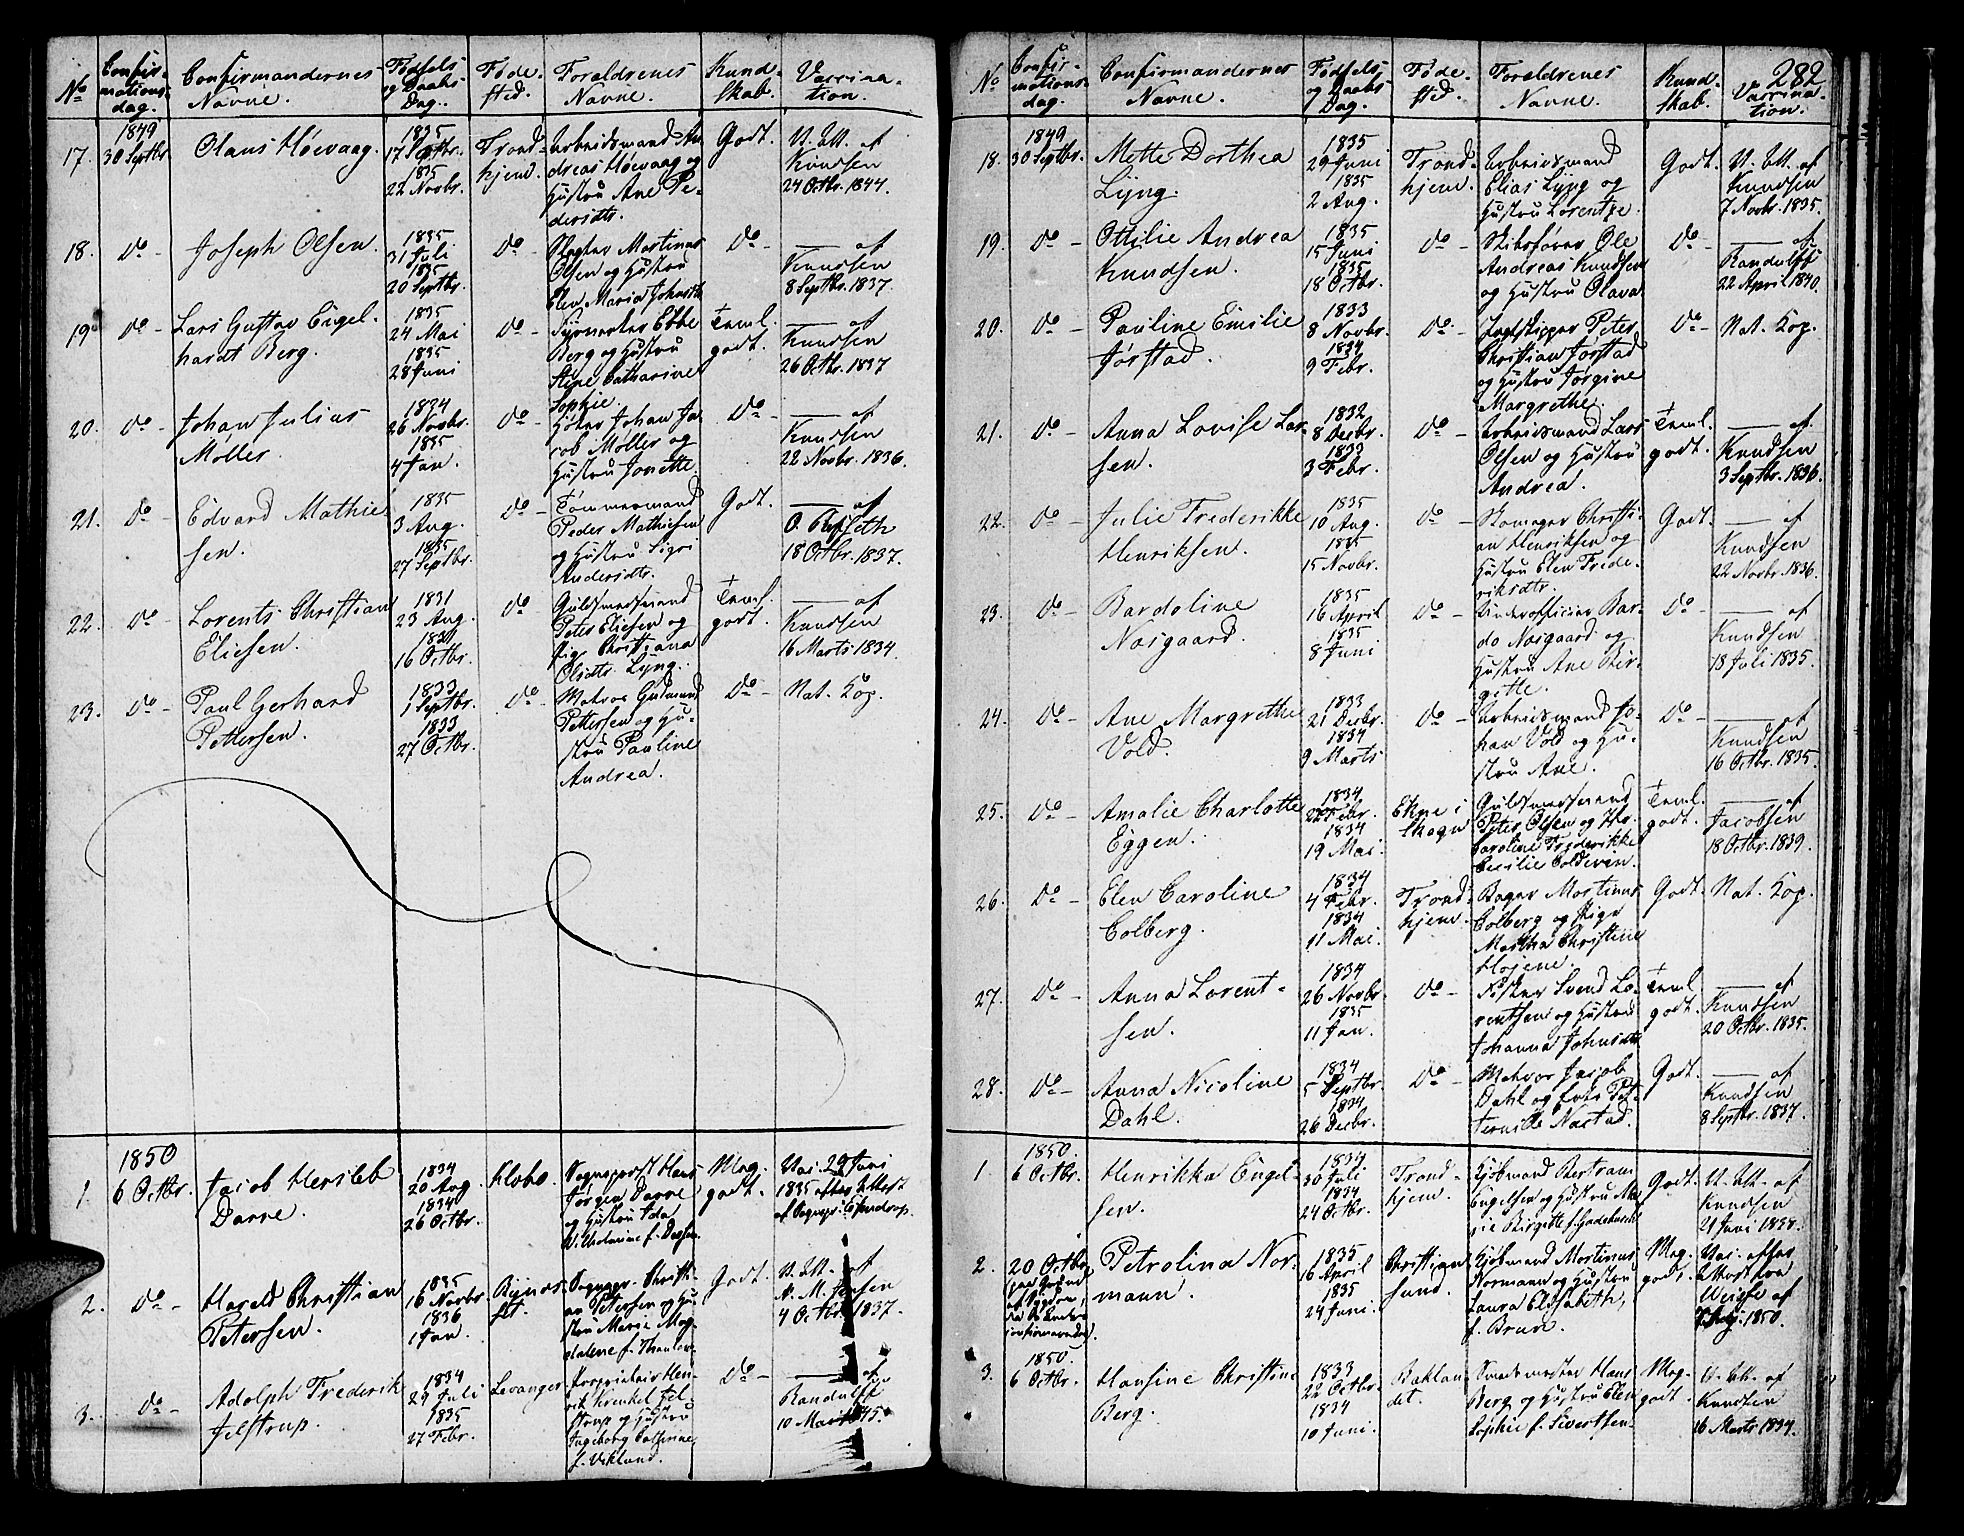 No
Confir-
mations-
dag.
Confirmandernes
Navne.
Fødsels
og Daabs
Dag.
Føde-
sted.
Forældrenes
Navne.
Kund-
skab.
Vaccina-
tion.
17.
1849
30 Septbr.
Olaus Høevaag.
1835
17 Septbr.
1835
22 Novbr.
Trond-
hjem.
Arbeidsmand An
dreas Høevaag og
Hustru Ane Pe-
dersdtr.
Godt.
V. Att. af
Knudsen
24 Octbr. 1844.
18.
Do -
Joseph Olsen.
1835
31 Juli
1835
20 Septbr.
Do -
Slagter Martinus
Olsen og Hustru
Elen Maria Johnsdtr.
Do -
— af
Knudsen
8 Septbr. 1837.
19.
Do -
Lars Gustav Engel-
hardt Berg.
1835
24 Mai
1835
28 Juni
Do -
Ebbe
Berg og Hustru
Stine Catharine
Sophie.
Teml.
godt.
— af
Knudsen
26 Octbr. 1837
20.
Do -
Johan Julius
Møller.
1834
26 Novbr.
1835
4 Jan.
Do -
Johan Ja-
cob Møller og
Hustru Jonette.
Do -
— af
Knudsen
22 Novbr. 1836.
21.
Do -
Edvard Mathie
sen.
1835
3 Aug.
1835
27 Septbr.
Do -
Tømmermand
Peder Mathiesen
og Hustru Sigri
Andersdtr.
Godt.
— af
18 Octbr. 1837.
22.
Do -
Lorents Christian
Eliesen.
1831
23 Aug.
1831
16 Octbr.
Do -
Guldsmedsvend
Peter Eliesen og
Pige Christiana
Olsdtr. Lyng.
Teml.
godt.
— af
Knudsen
16 Marts 1834.
23.
Do -
Paul Gerhard
Pettersen.
1833
1 Septbr.
1833
27 Octbr.
Do
Matros Gudmund
Pettersen og Hu-
stru Pauline
Andrea.
Do -
Nat. Kop.
1.
1850
6 Octbr.
Jacob Hersleb
Darre.
1834
20 Aug.
1834
26 Octbr.
Klæbo.
Sogneprest Hans
Jørgen Darre
og Hustru Ida
Wilhelmine f. Dessen.
Meg.
godt.
Vac. 29 Juni
1835 efter Attest
af Sognepr.
2.
Do -
Harald Christian
Petersen.
1835
16 Novbr.
1836
1 Jan.
Bynes-
set.
Sognepr. Christi-
an Petersen og Hu-
stru Marie Mag-
dalene f. Thaulow.
Godt.
V. Att. af
N. M. Jensen
4 Octbr. 1837.
3.
Do -
Adolph Frederik
Jelstrup.
1834
29 Juli
1835
27 Febr.
Levanger
Proprietair Hen-
rik Krenkel Jel-
strup og Hustru
Ingeborg Catherine
f. Veklund.
Do -
— af
Randulff
10 Marts 1845.
282
No
Confir-
mations-
dag.
Confirmandernes
Navne.
Fødsels
og Daabs
Dag.
Føde-
sted.
Forældrenes
Navne.
Kund-
skab.
Vaccina-
tion.
18.
1849
30 Septbr.
Mette Dorthea
Lyng.
1835
29 Juni
1835
2 Aug.
Trond-
hjem.
Arbeidsmand
Elias Lyng og
Hustru Lorentze.
Godt.
V. Att. af
Knudsen
7 Novbr. 1835.
19.
Do -
Ottilie Andrea
Knudsen.
1835
15 Juni
1835
18 Octbr.
Do -
Skibsfører Ole
Andreas Knudsen
og Hustru Olava.
Do -
— af
Randulff
22 April 1840.
20.
Do -
Pauline Emilie
Jørstad.
1833
8 Novbr.
1834
9 Febr.
Do -
Jagtskipper Peter
Christian Jørstad
og Hustru Jørgine
Margrethe.
Do -
Nat. Kop.
21.
Do -
Anna Lovise Lar-
sen.
1832
8 Decbr.
1833
3 Febr.
Do -
Arbeidsmand Lars
Olsen og Hustru
Andrea.
Teml.
godt.
— af
Knudsen
3 Septbr. 1836.
22.
Do -
Julie Frederikke
Henriksen.
1835
10 Aug.
1835
15 Novbr.
Do -
Skomager Christi-
an Henriksen og
Hustru Elen Frede-
riksdtr.
Godt.
— af
Knudsen
22 Novbr. 1836.
23.
Do -
Bardoline
Nosgaard.
1835
16 April
1835
8 Juni
Do -
Underofficier Bar-
do Nosgaard og
Hustru Ane Bir-
gitte.
Do -
— af
Knudsen
18 Juli 1835.
24.
Do -
Ane Margrethe
Vold.
1833
21 Decbr.
1834
9 Marts
Do -
Arbeidsmand Jo-
han Vold og Hu-
stru Ane.
Do -
— af
Knudsen
16 Octbr. 1835.
25.
Do -
Amalie Charlotte
Eggen.
1834
22 Febr.
1834
19 Mai.
Ekne i
Skogn
Guldsmedsvend
Peter Olsen og
Caroline Frederikke
Cecilie Coldevin.
Teml.
godt.
— af
Jacobsen
18 Octbr. 1839.
26.
Do -
Elen Caroline
Colberg.
1834
4 Febr.
1834
11 Mai.
Trond-
hjem.
Bager Martinus
Colberg og Pige
Martha Christine
Høiene.
Godt.
Nat. Kop.
27.
Do -
Anna Lorent-
sen.
1834
26 Novbr.
1835
11 Jan.
Do -
Fisker Svend Lo-
rentsen og Hustru
Johanna Johnsdtr.
Teml.
godt.
— af
Knudsen
20 Octbr. 1835.
28.
Do -
Anna Nicoline
Dahl.
1834
5 Septbr.
1834
26 Decbr.
Do -
Matros Jacob
Dahl og Enke Pet-
ternille Nastad.
Godt.
— af
Knudsen
8 Septbr. 1837.
1.
1850.
6 Octbr.
Henrikka Engel-
sen.
1834
30 Juli
1834
24 Octbr.
Trond-
hjem.
Kjøbmand Bertram
Engelsen og Hustru Ma-
rie Birgitte f. Hadebusch
Godt.
V. Att. af
Knudsen
21 Juni 1838.
2.
20 Octbr.
(paa Grund
af Sygdom,
da de Andre
confirmeredes).
Petrolina Nor-
mann.
1835
16 April
1835
24 Juni.
Christian
sund.
Kjøbmand Mortinus
Normann og Hustru
Laura Elisabeth,
f. Brun.
Meg.
godt.
Vac. efter
Attest fra
Weisse af
1850.
3.
1850.
6 Octbr.
Hansine Christine
Berg.
1833
22 Octbr.
1834
10 Juni.
Baklan
det.
Smedmester Hans
Berg og Hustru Elen
Sophie f. Sivertsen.
Meg.
godt.
V. Att. af
Knudsen
16 Marts 1834.